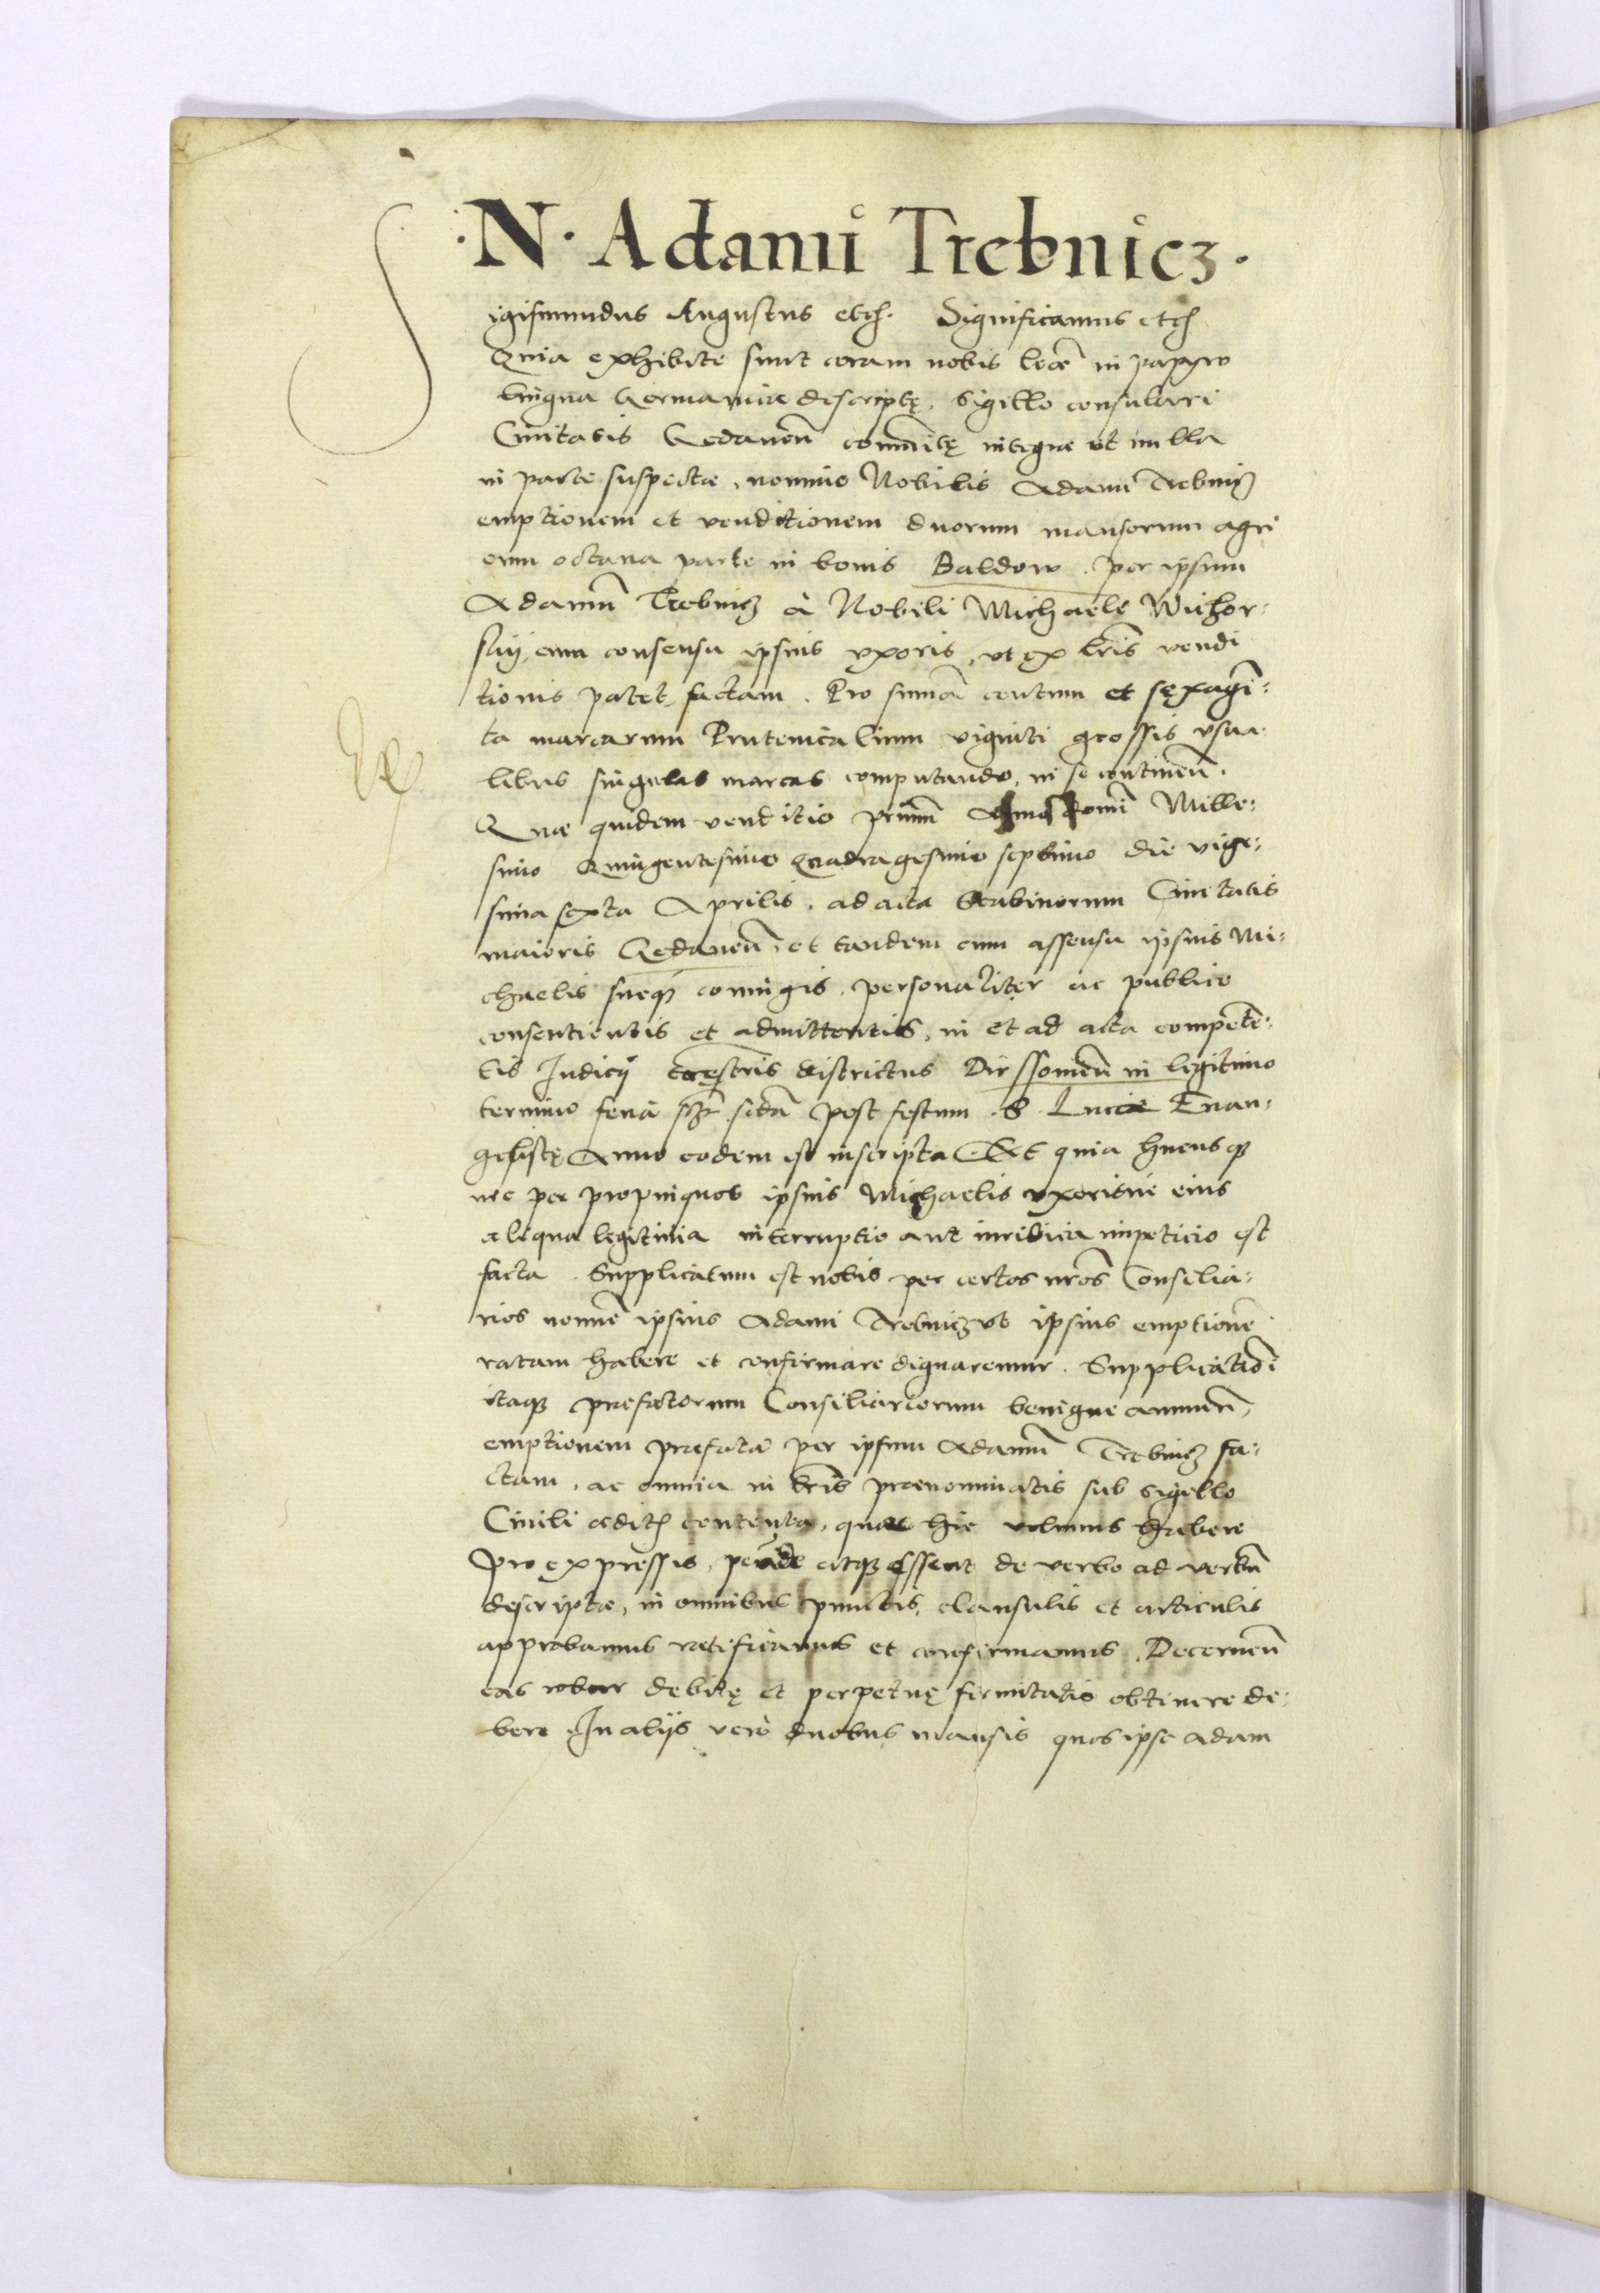 ·N· Adami Trebnicz·
Sigismundus Augustus etc. Significamus etc
Quia exhibitæ sunt coram nobis lræ in papyro
lingua Germanica descriptę, Sigillo consulari
Civitatis Gedaneñ com̄unitę integræ ut nulla
in parte suspectæ, nomine Nobilis Adami Trebnicz
emptionem et venditionem duorum mansorum agri
cum octava parte in bonis Baldow per ipsum
Adamū Trebnicz à Nobili Michaele Wichor:
skij, cum consensu ipsius vxoris, vt ex lris vendi
tionis patet, factam. Pro sum̄a centum et sexagin:
ta marcarum Prutenicalium viginti grossis vsua:
libus singulas marcas computando, in se contineñ.
Quæ quidem venditio primū Anno Domi Mille:
simo Quingentesimo Quadragesimo septimo die vige:
sima sexta Aprilis, ad acta Scabinorum Civitatis
maioris Gedaneñ, et tandem cum assensu ipsius Mi:
chaelis sueq₃ coniugis, personaliter ac publice
consentientis et admittentis, in et ad acta competē:
tis Judicij terrestris districtus Dirssoviensñ in legitimo
termino feria scđa post festum S. Lucæ Evan:
gelistę Anno eodem est inscripta. Et quia hucusq₃
nec per propinquos ipsius Michaelis vxorisue eius
aliqua legitima interruptio aut iuridica impeticio est
facta. Supplicatum est nobis per certos nros Consilia:
rios nomīe ipsius Adami Trebnicz vt ipsius emptionē
ratam habere et confirmare dignaremur. Supplicationi
itaq₃ præfatorum Consiliariorum benigne annueñ,
emptionem præfatā per ipsum Adamū Trebnicz fa:
ctam, ac omnia in lris prænominatis sub sigillo
Civili æditis contenta, quas hic volumus habere
pro expressis, perinde atq₃ essent de verbo ad verbū
descriptæ, in omnibus punctis, clausulis et articulis
approbamus ratificamus et confirmamus. Decerneñ
eas robur debitę et perpetuę firmitatis obtinere de:
bere. In aliis vero duobus mansis quos ipse Adam